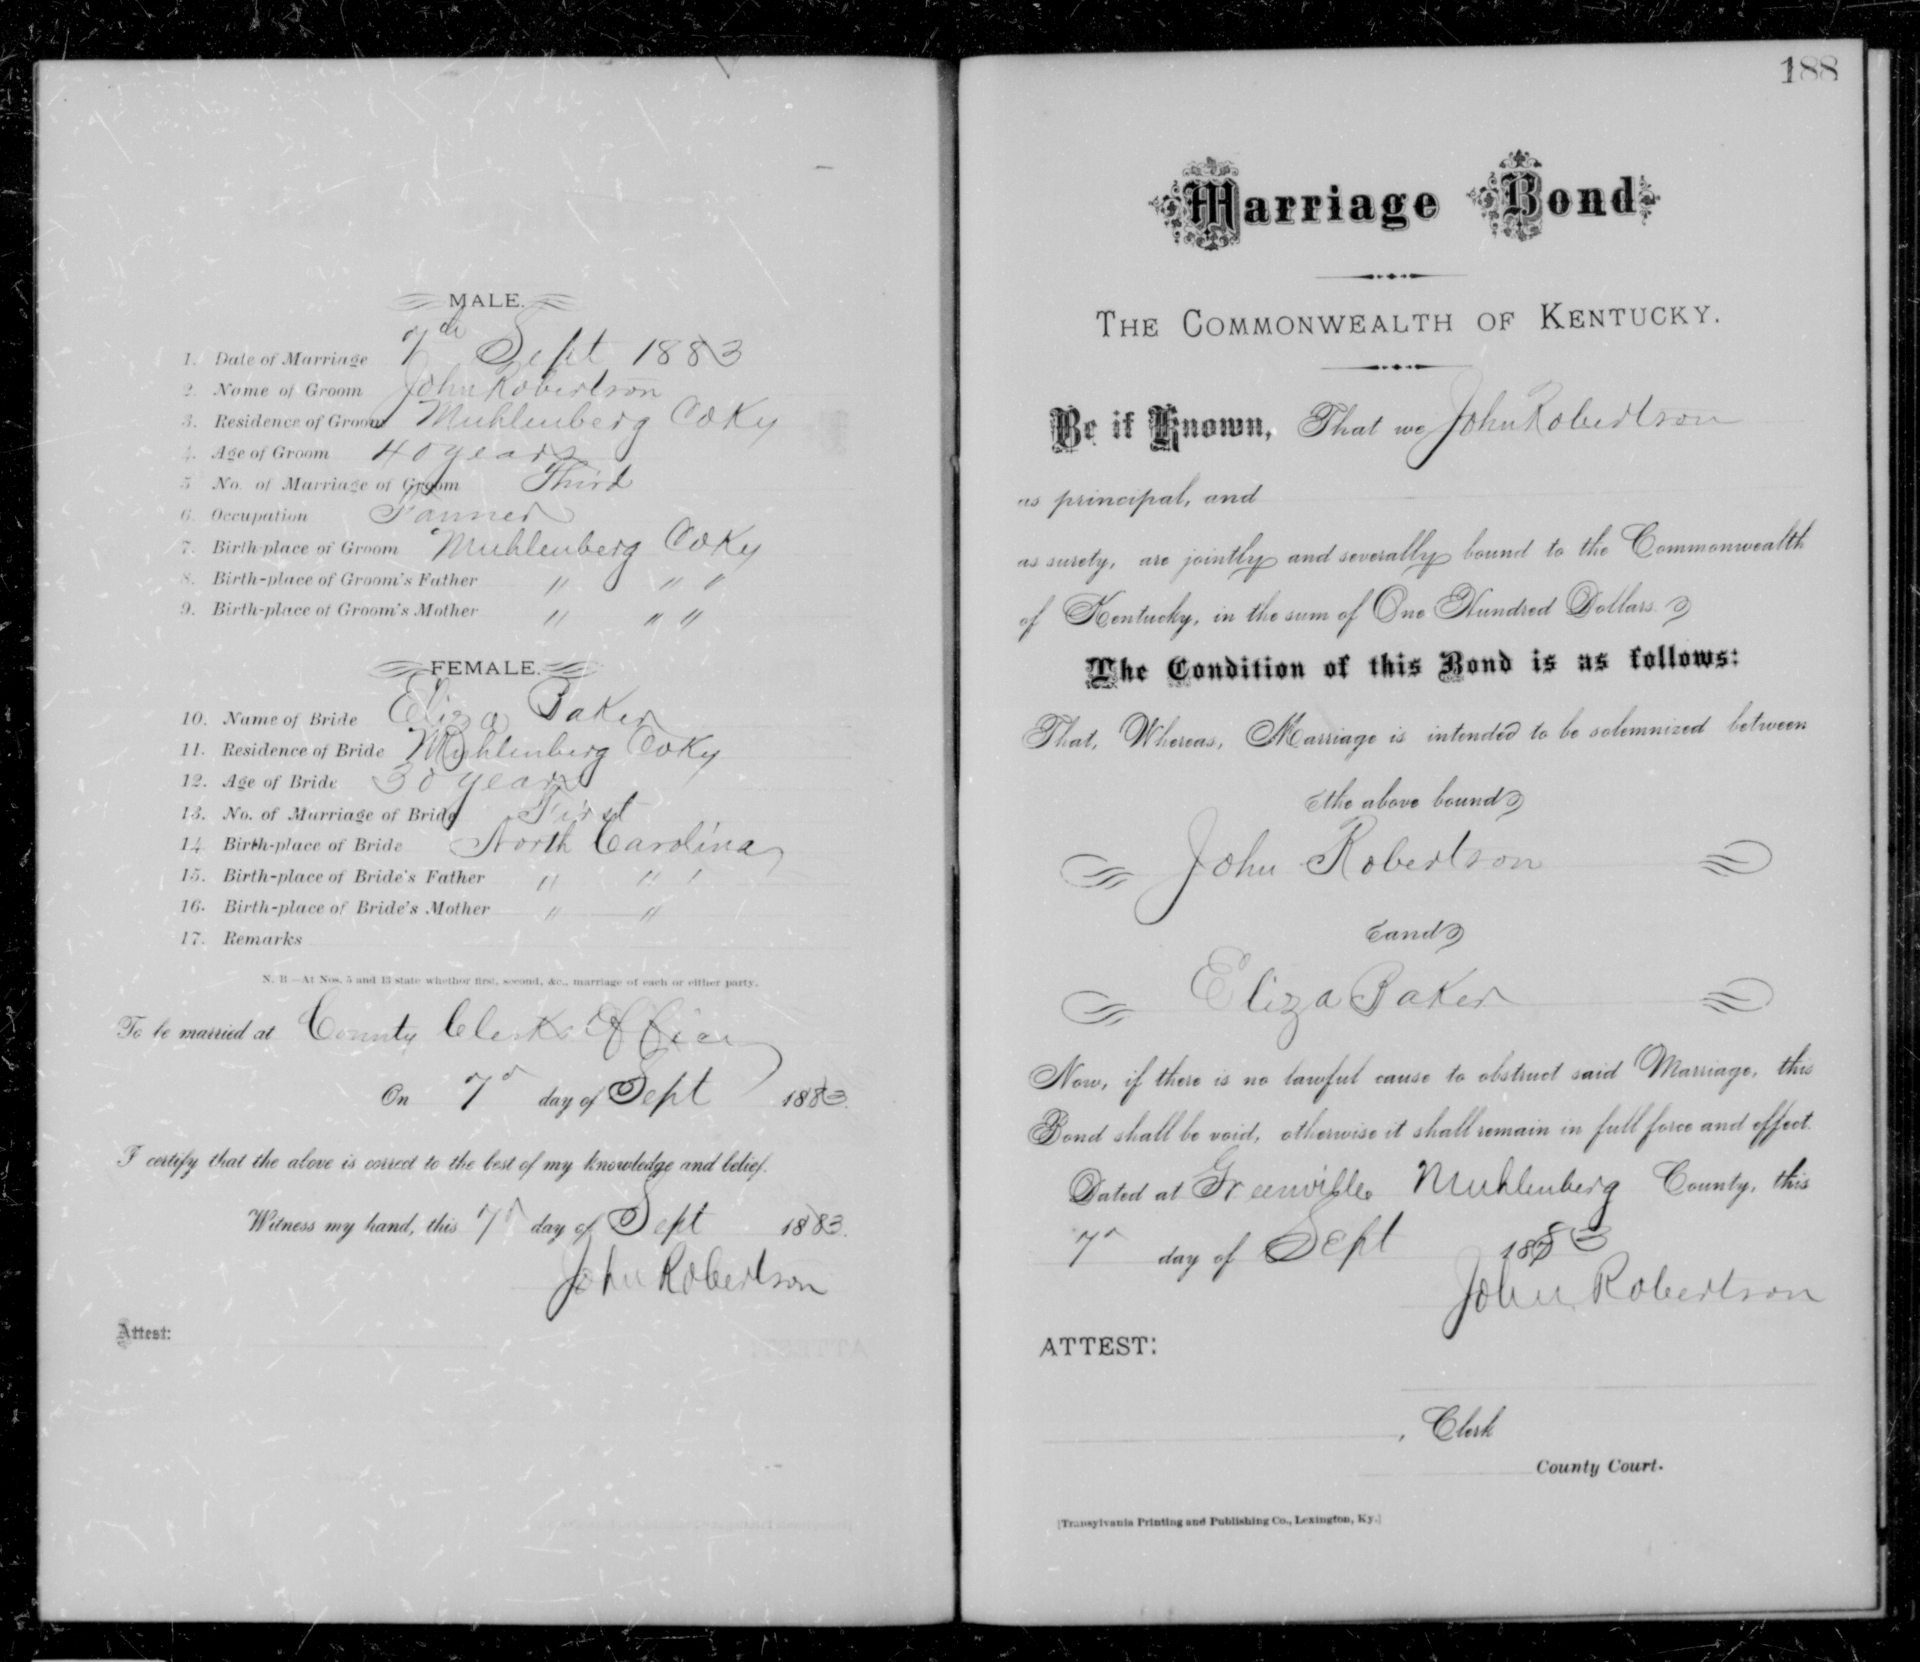 MALE.
1. Date of Marriage 7th Sept 1883
2. Name of Groom John Robertson
3. Residence of Groom Muhlenberg Co Ky
4. Age of Groom 40 years
5 No. of Marriage of Groom Third
6. Occupation Farmer
7. Birth-place of Groom Muhlenberg Co Ky
8. Birth-place of Groom's Father " " "
9. Birth-place of Groom's Mother " " "
FEMALE.
10. Name of Bride Eliza Baker
11. Residence of Bride Muhlenberg Co Ky
12. Age of Bride 30 years
13. No. of Marriage of Bride First
14. Birth-place of Bride North Carolina
15. Birth-place of Bride's Father " " '
16. Birth-place of Bride's Mother " "
17. Remarks
N. B—At Nos. 5 and 13 state whether first, second, &c., marriage of each or either party.
To be married at County Clerks Office
On 7th day of Sept 1883.
I certify that the above is correct to the best of my knowledge and belief.
Witness my hand, this 7th day of Sept 1883.
John Robertson
Attest:
188
Marriage Bond
THE COMMONWEALTH OF KENTUCKY.
Be it Known, That we John Robertson
as principal, and
as surety, are jointly and severally bound to the Commonwealth
of Kentucky, in the sum of One Hundred Dollars.
The Condition of this Bond is as follows:
That, Whereas, Marriage is intended to be solemnized between
the above bound
John Robertson
and
Eliza Baker
Now, if there is no lawful cause to obstruct said Marriage, this
Bond shall be void, otherwise it shall remain in full force and effect.
Dated at Greenville Muhlenberg County, this
7th day of Sept 1883
John Robertson
ATTEST:
, Clerk
County Court.
[Transylvania Printing and Publishing Co., Lexington, Ky.]